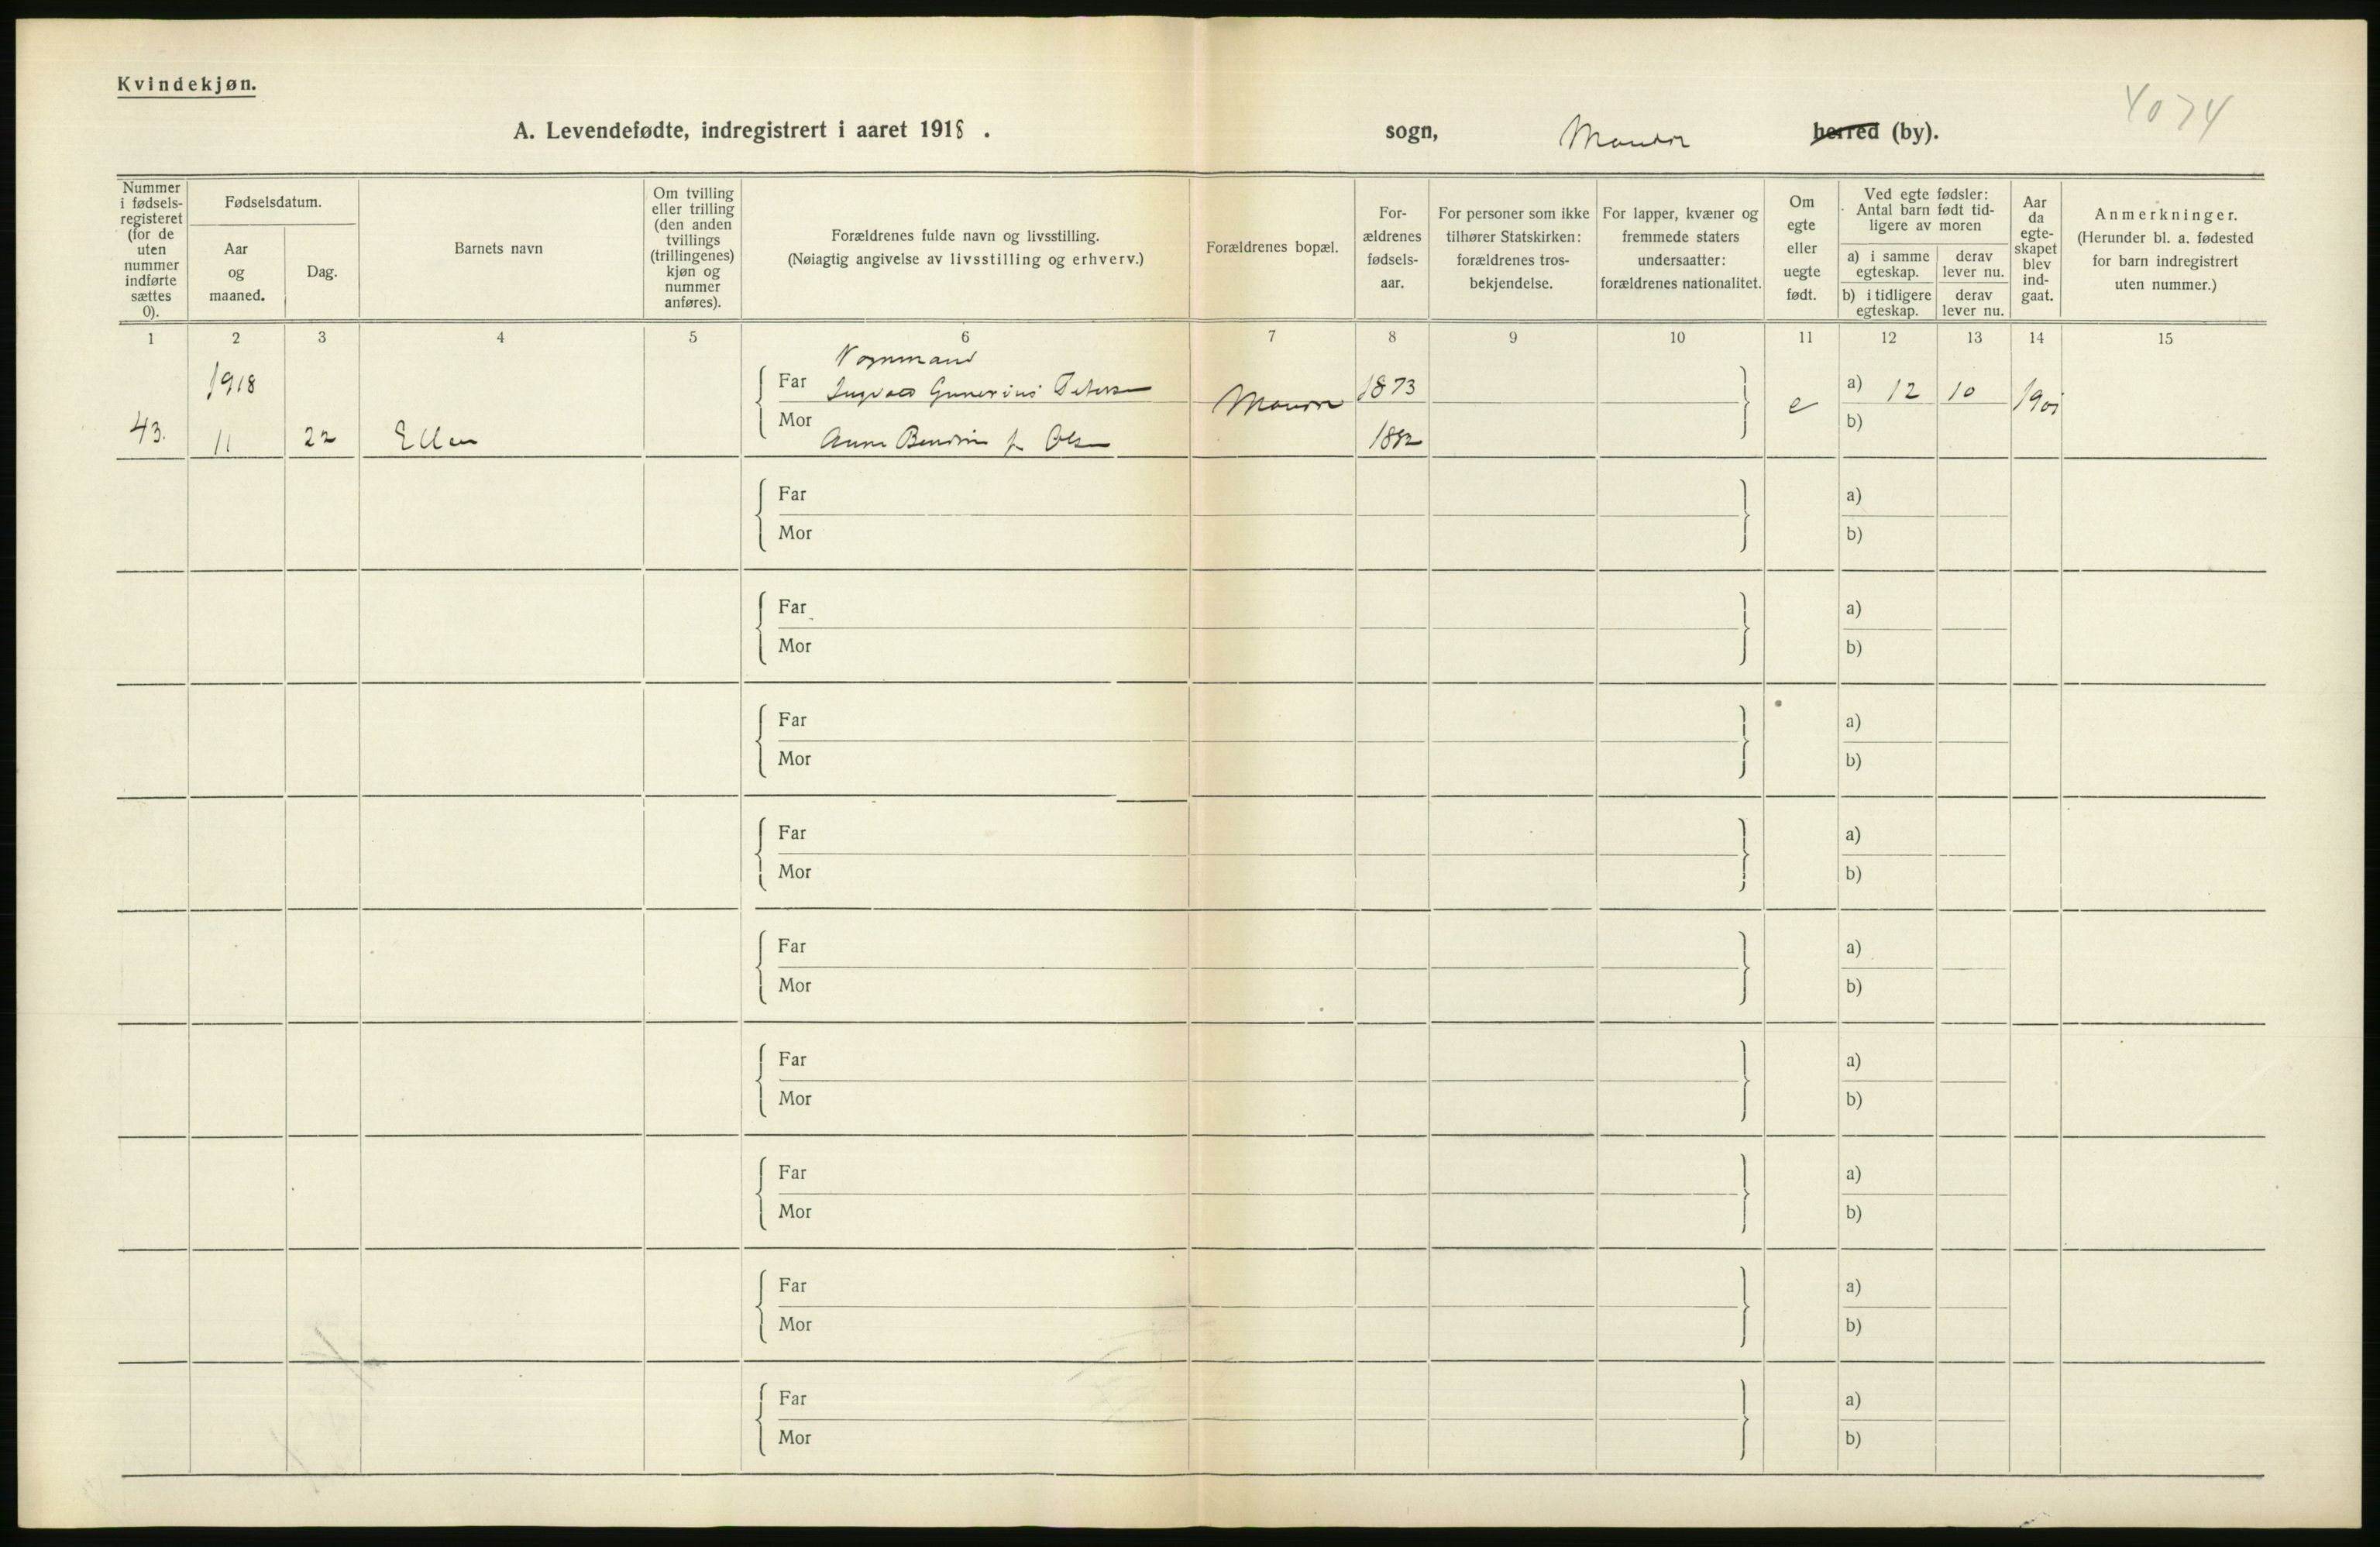 Kvindekjøn.
4074
A. Levendefødte, indregistrert i aaret 1918.
sogn, herred (by).
Nummer i fødsels-registeret (for de uten nummer indførte sættes 0).
Fødselsdatum.
Aar og maaned.
Dag.
Barnets navn
Om tvilling eller trilling (den anden tvillings (trillingenes) kjøn og nummer anføres).
Forældrenes fulde navn og livsstilling.
(Nøiagtig angivelse av livsstilling og erhverv.)
Forældrenes bopæl.
For-ældrenes fødsels-aar.
For personer som ikke tilhører Statskirken: forældrenes tros-bekjendelse.
For lapper, kvæner og fremmede staters undersaatter: forældrenes nationalitet.
Om egte eller uegte født.
Ved egte fødsler: Antal barn født tid-ligere av moren
a) i samme egteskap.
derav lever nu.
b) i tidligere egteskap.
derav lever nu.
Aar da egte-skapet blev ind-gaat.
Anmerkninger.
(Herunder bl. a. fødested for barn indregistrert uten nummer.)
1 2 3 4 5 6 7 8 9 10 11 12 13 14 15
Vognmand
1918 Far Gunerius Petersen 1873 e a) 12 10
43. 11 22 Ellen Mor Anna f. Olsen 1882 b)
Far a)
Mor b)
Far a)
Mor b)
Far a)
Mor b)
Far a)
Mor b)
Far a)
Mor b)
Far a)
Mor b)
Far a)
Mor b)
Far a)
Mor b)
Far a)
Mor b)